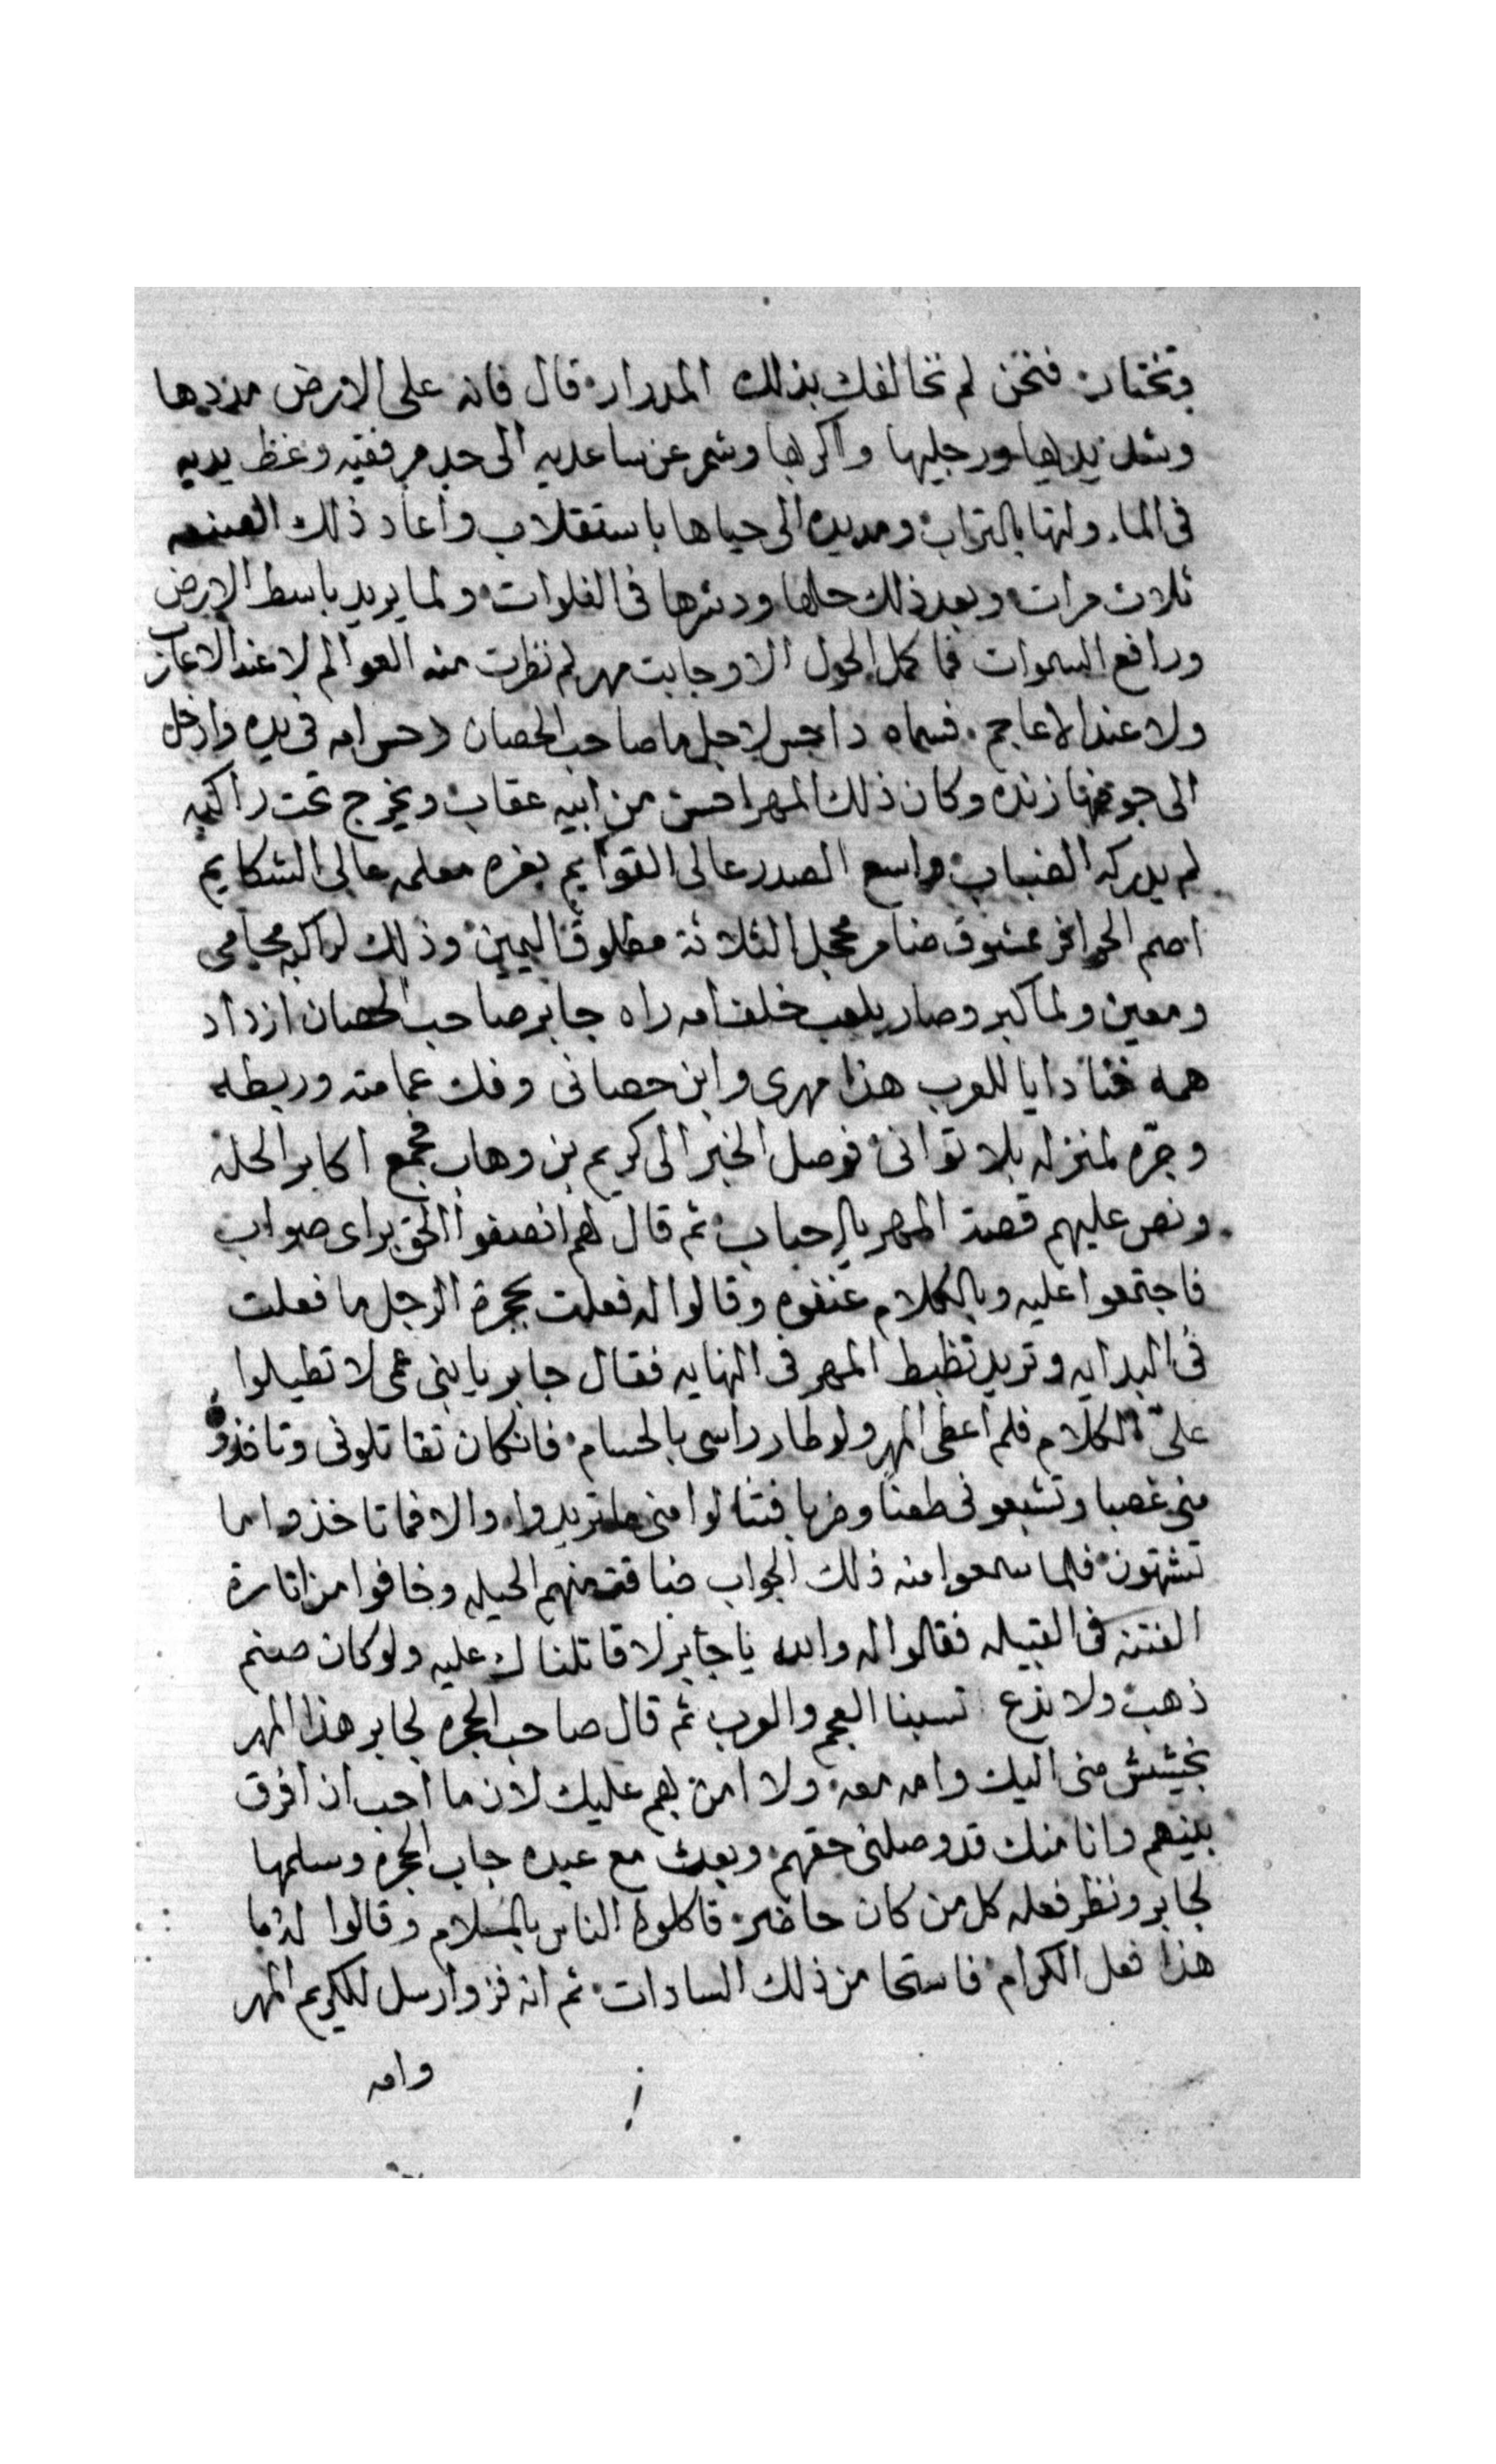 وتختار فنحن لم نخالفك بذلك المدرار قال فانه على الارض مددها
وشد يديها ورجليها واكرها وشمر عن ساعديه الى حد مرفقيه وغط يديه
فى الماء ولتها بالتراب ومد يده الى حياها باستقلاب واعاد ذلك الصنعه
ثلاث مرات وبعد ذلك حلها ودشرها فى الفلوات ولما يريد باسط الارض
ورافع السموات فما كمل الحول الا وجابت مهر لم نظرت مثله العوالم لا عند الاعارب
ولا عند الاعاجم فسماه داحس لاجل ما صاحب الحصان دحس امه فى يده وادخل
الى جوفها زنده وكان ذلك المهر احسن من ابيه عقاب ويخرج تحت راكبه
لم يدركه الضباب واسع الصدر عالى القوايم بغره معلمه عالى الشكايم
اصم الحوافر ممشوق ضامر محجل الثلاثة مطلوق اليمين وذلك لراكبه محامى
ومعين ولما كبر وصار يلعب خلف امه راه جابر صاحب الحصان ازداد
همه فنادا يا للعرب هذا مهرى وابن حصانى وفك عمامته وربطه
وجرّه لمنزله بلا توانى فوصل الخبر الى كريم بن وهاب فجمع اكابر الحله
ونص عليهم قصة المهر بالرحباب ثم قال لهم انصفوا الحق براى صواب
فاجتمعوا عليه وبالكلام عنفوه وقالوا له فعلت بحجرة الرجل ما فعلت
فى البدايه وتريد تظبط المهر فى النهايه فقال جابر يا بنى عمى لا تطيلوا
علىّ الكلام فلم اعطى المهر ولو طار راسى بالحسام فانكان تقاتلونى وتاخذوه
منى غصبا وتشبعونى طعنا وضربا فتنالوا منى ما تريدوا والا فما تاخذوا ما
تشتهون فلما سمعوا منه ذلك الجواب ضاقت منهم الحيله وخافوا من اثارة
الفتنه فى القبيله فقالوا له والله يا جابر لا قاتلناك عليه ولو كان صنم
ذهب ولا ندع تسبنا العجم والعرب ثم قال صاحب الحجره لجابر هذا المهر
بخشيش منى اليك وامه معه ولا امن بهم عليك لان ما احب ان افرق
بينهم وانا منك قد وصلنى حقهم وبعث مع عبده جاب الحجره وسلمها
لجابر ونظر فعله كل من كان حاضر فاكلوه الناس بالمسلام وقالوا له ما
هذا فعل الكرام فاستحا من ذلك السادات ثم انه فز وارسل للكريم المهر
وامه